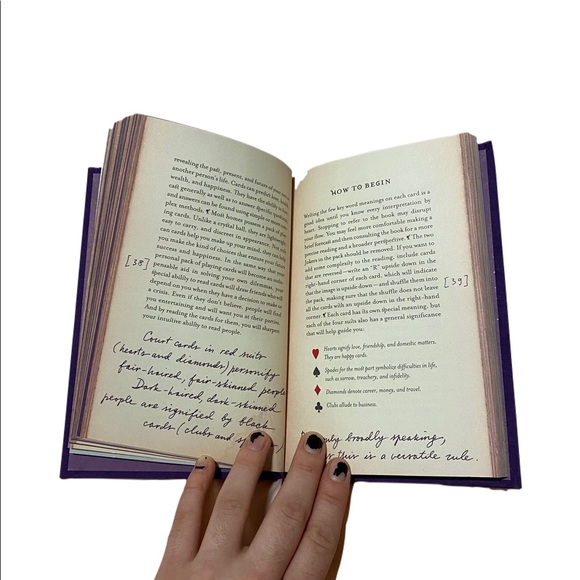 revealing the past, present, and future of your
another person's life. Cards can predict love,
wealth, and happiness. They have the ability to
cast generally as well as to answer specific
and answers can be found using simple or
plex methods. ¶ Most homes possess a pack of
ing cards. Unlike a crystal ball, they are
easy to carry, and discreet in appearance. Not
can cards help you make up your mind, they can
you make the kind of choices that ensure your
success and happiness. In the same way that
personal pack of playing cards will become an
pensable aid in solving your own dilemmas, your
special ability to read cards will draw friends who will
depend on you when they have a decision to make or
a crisis. Even if they don't believe, people will find
you entertaining and will want you at their parties.
And by reading the cards for them, you will sharpen
your intuitive ability to read people.
[38]
Court cards in red suits
(hearts and diamonds) personify
fair-haired, fair-skinned people.
Dark-haired, dark-skinned
people are signified by black
cards (clubs and
HOW TO BEGIN
Writing the few key word meanings on each card is a
good idea until you know every interpretation by
heart. Stopping to refer to the book may disrupt
your flow. You may feel more comfortable making a
brief forecast and then consulting the book for a more
precise reading and a broader perspective. ¶ The two
jokers in the pack should be removed. If you want to
add some complexity to the reading, include cards
that are reversed—write an "R" upside down in the
right-hand corner of each card, which will indicate
that the image is upside down—and shuffle them into
the pack, making sure that the shuffle does not leave
all the cards with an upside down in the right-hand
corner. ¶ Each card has its own special meaning, but
each of the four suits also has a general significance
that will help guide you:
[39]
Hearts signify love, friendship, and domestic matters.
They are happy cards.
Spades for the most part symbolize difficulties in life,
such as sorrow, treachery, and infidelity.
Diamonds denote career, money, and travel.
Clubs allude to business.
broadly speaking,
this is a versatile rule.